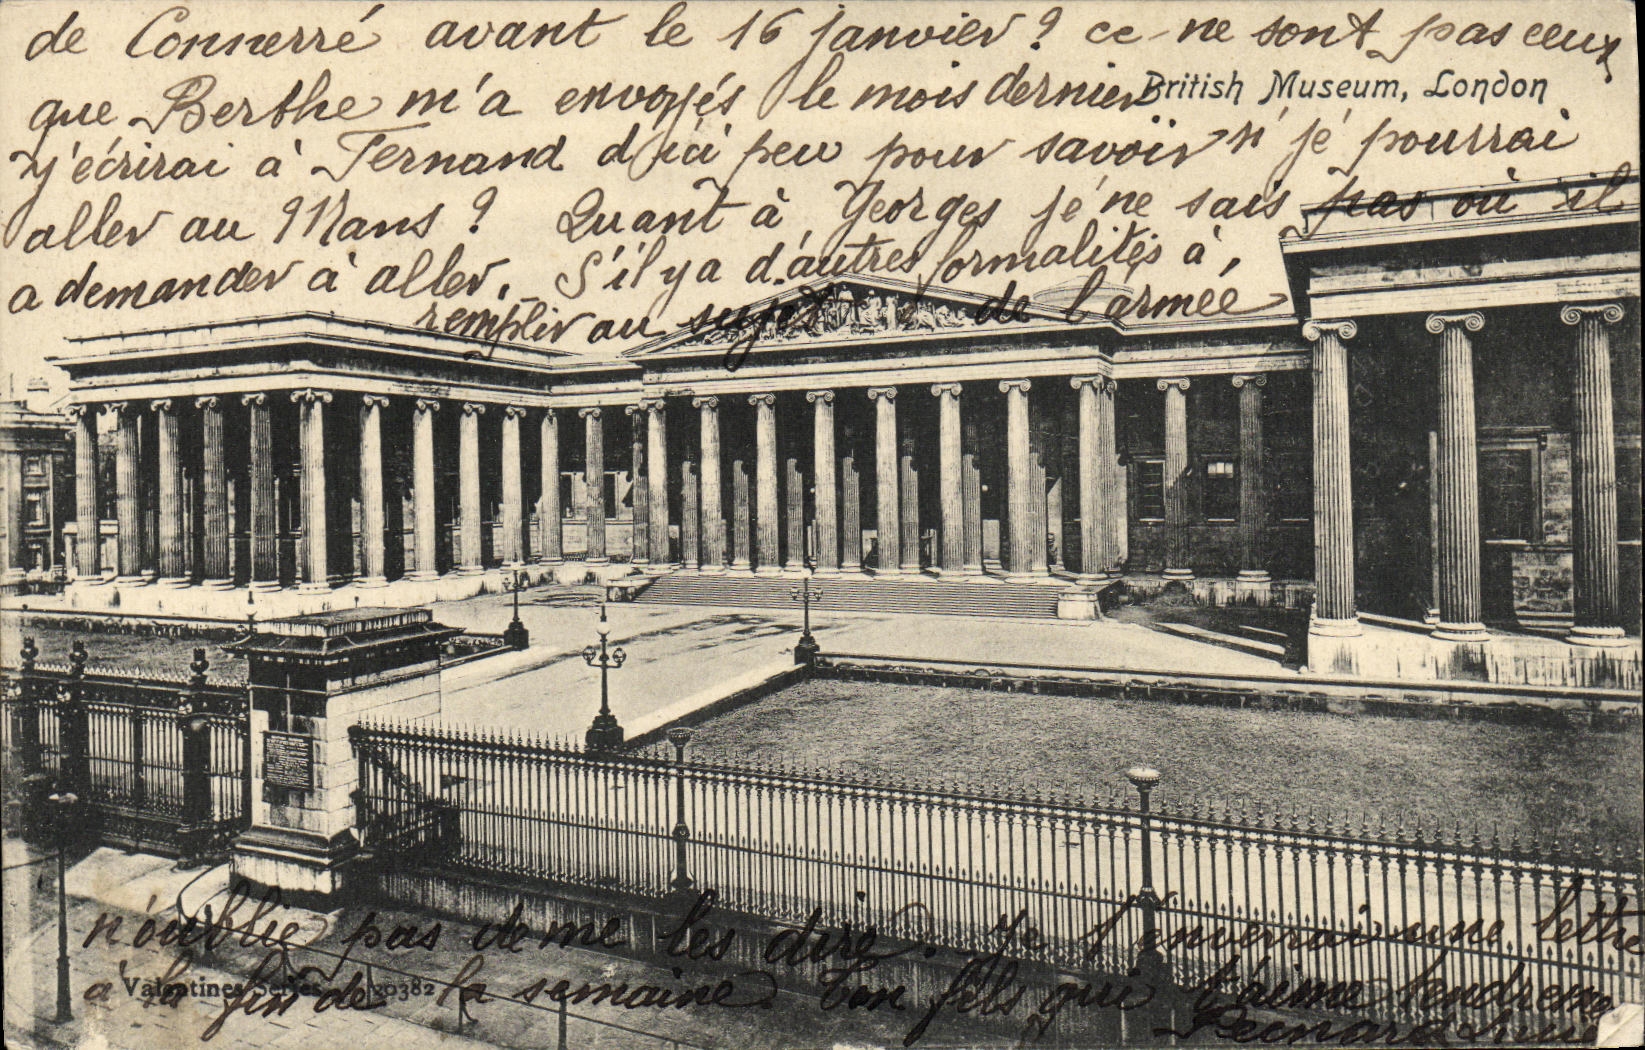 de Connerré avant le 16 janvier ? ce ne sont pas ceux
que Berthe m'a envoyés le mois dernier
British Museum, London
j'écrirai à Fernand d'ici peu pour savoir si je pourrai
aller au Mans ? Quant à Georges je ne sais pas où il
a demander à aller. S'il y a d'autres formalités à
remplir au sujet de l'armée
n'oublie pas de me les dire. Je t'enverrai une lettre
à la fin de la semaine. Ton fils qui t'aime tendrement
Valentines Series 20382